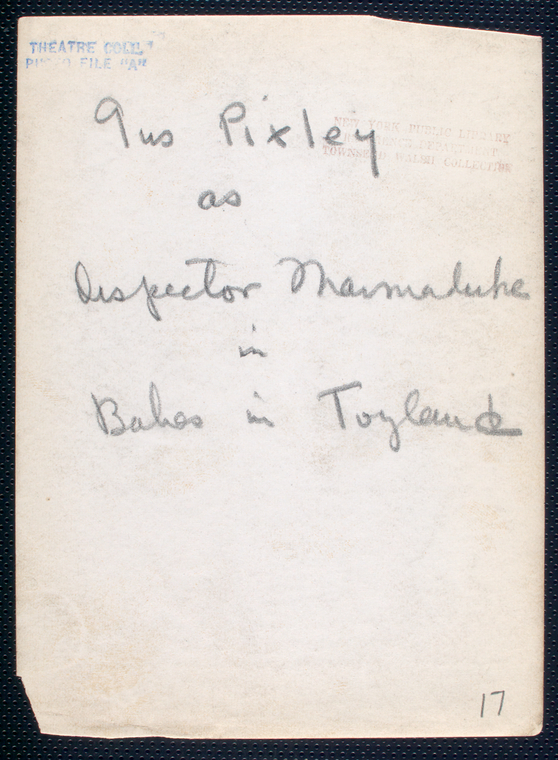 THEATRE COLL.
PHOTO FILE "A"
NEW YORK PUBLIC LIBRARY
REFERENCE DEPARTMENT
TOWNSEND WALSH COLLECTION
Gus Pixley
as
Inspector Marmaduke
in
Babes in Toyland
17